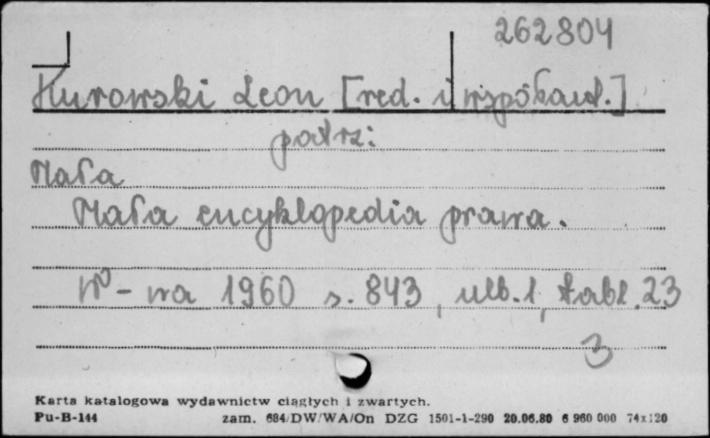 262804
Kurowski Leon [red. i współaut.]
patrz:
Mała
Mała encyklopedia prawa.
W-wa 1960 s. 843, ulb. 1, tabl. 23
3
Karta katalogowa wydawnictw ciągłych i zwartych.
Pu-B-144 zam. 684/DW/WA/On DZG 1501-1-290 20.06.80 6 960 000 74x120